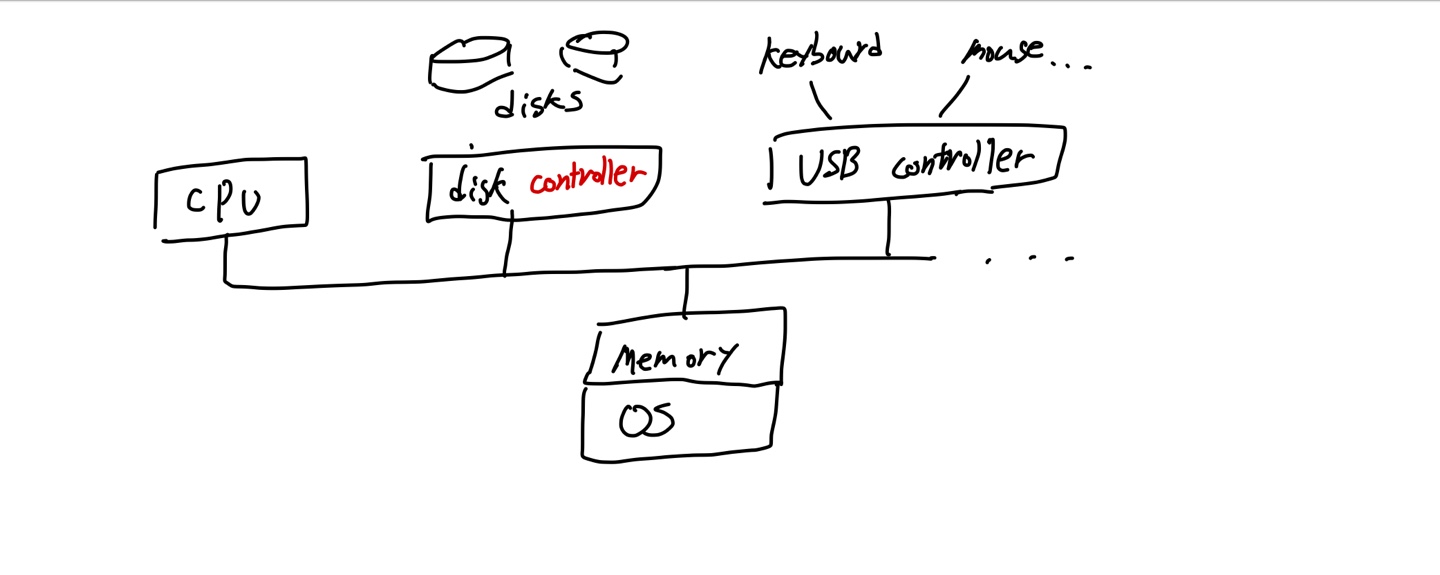 keyboard mouse...
disks
CPU
disk controller
USB controller
....
Memory
OS